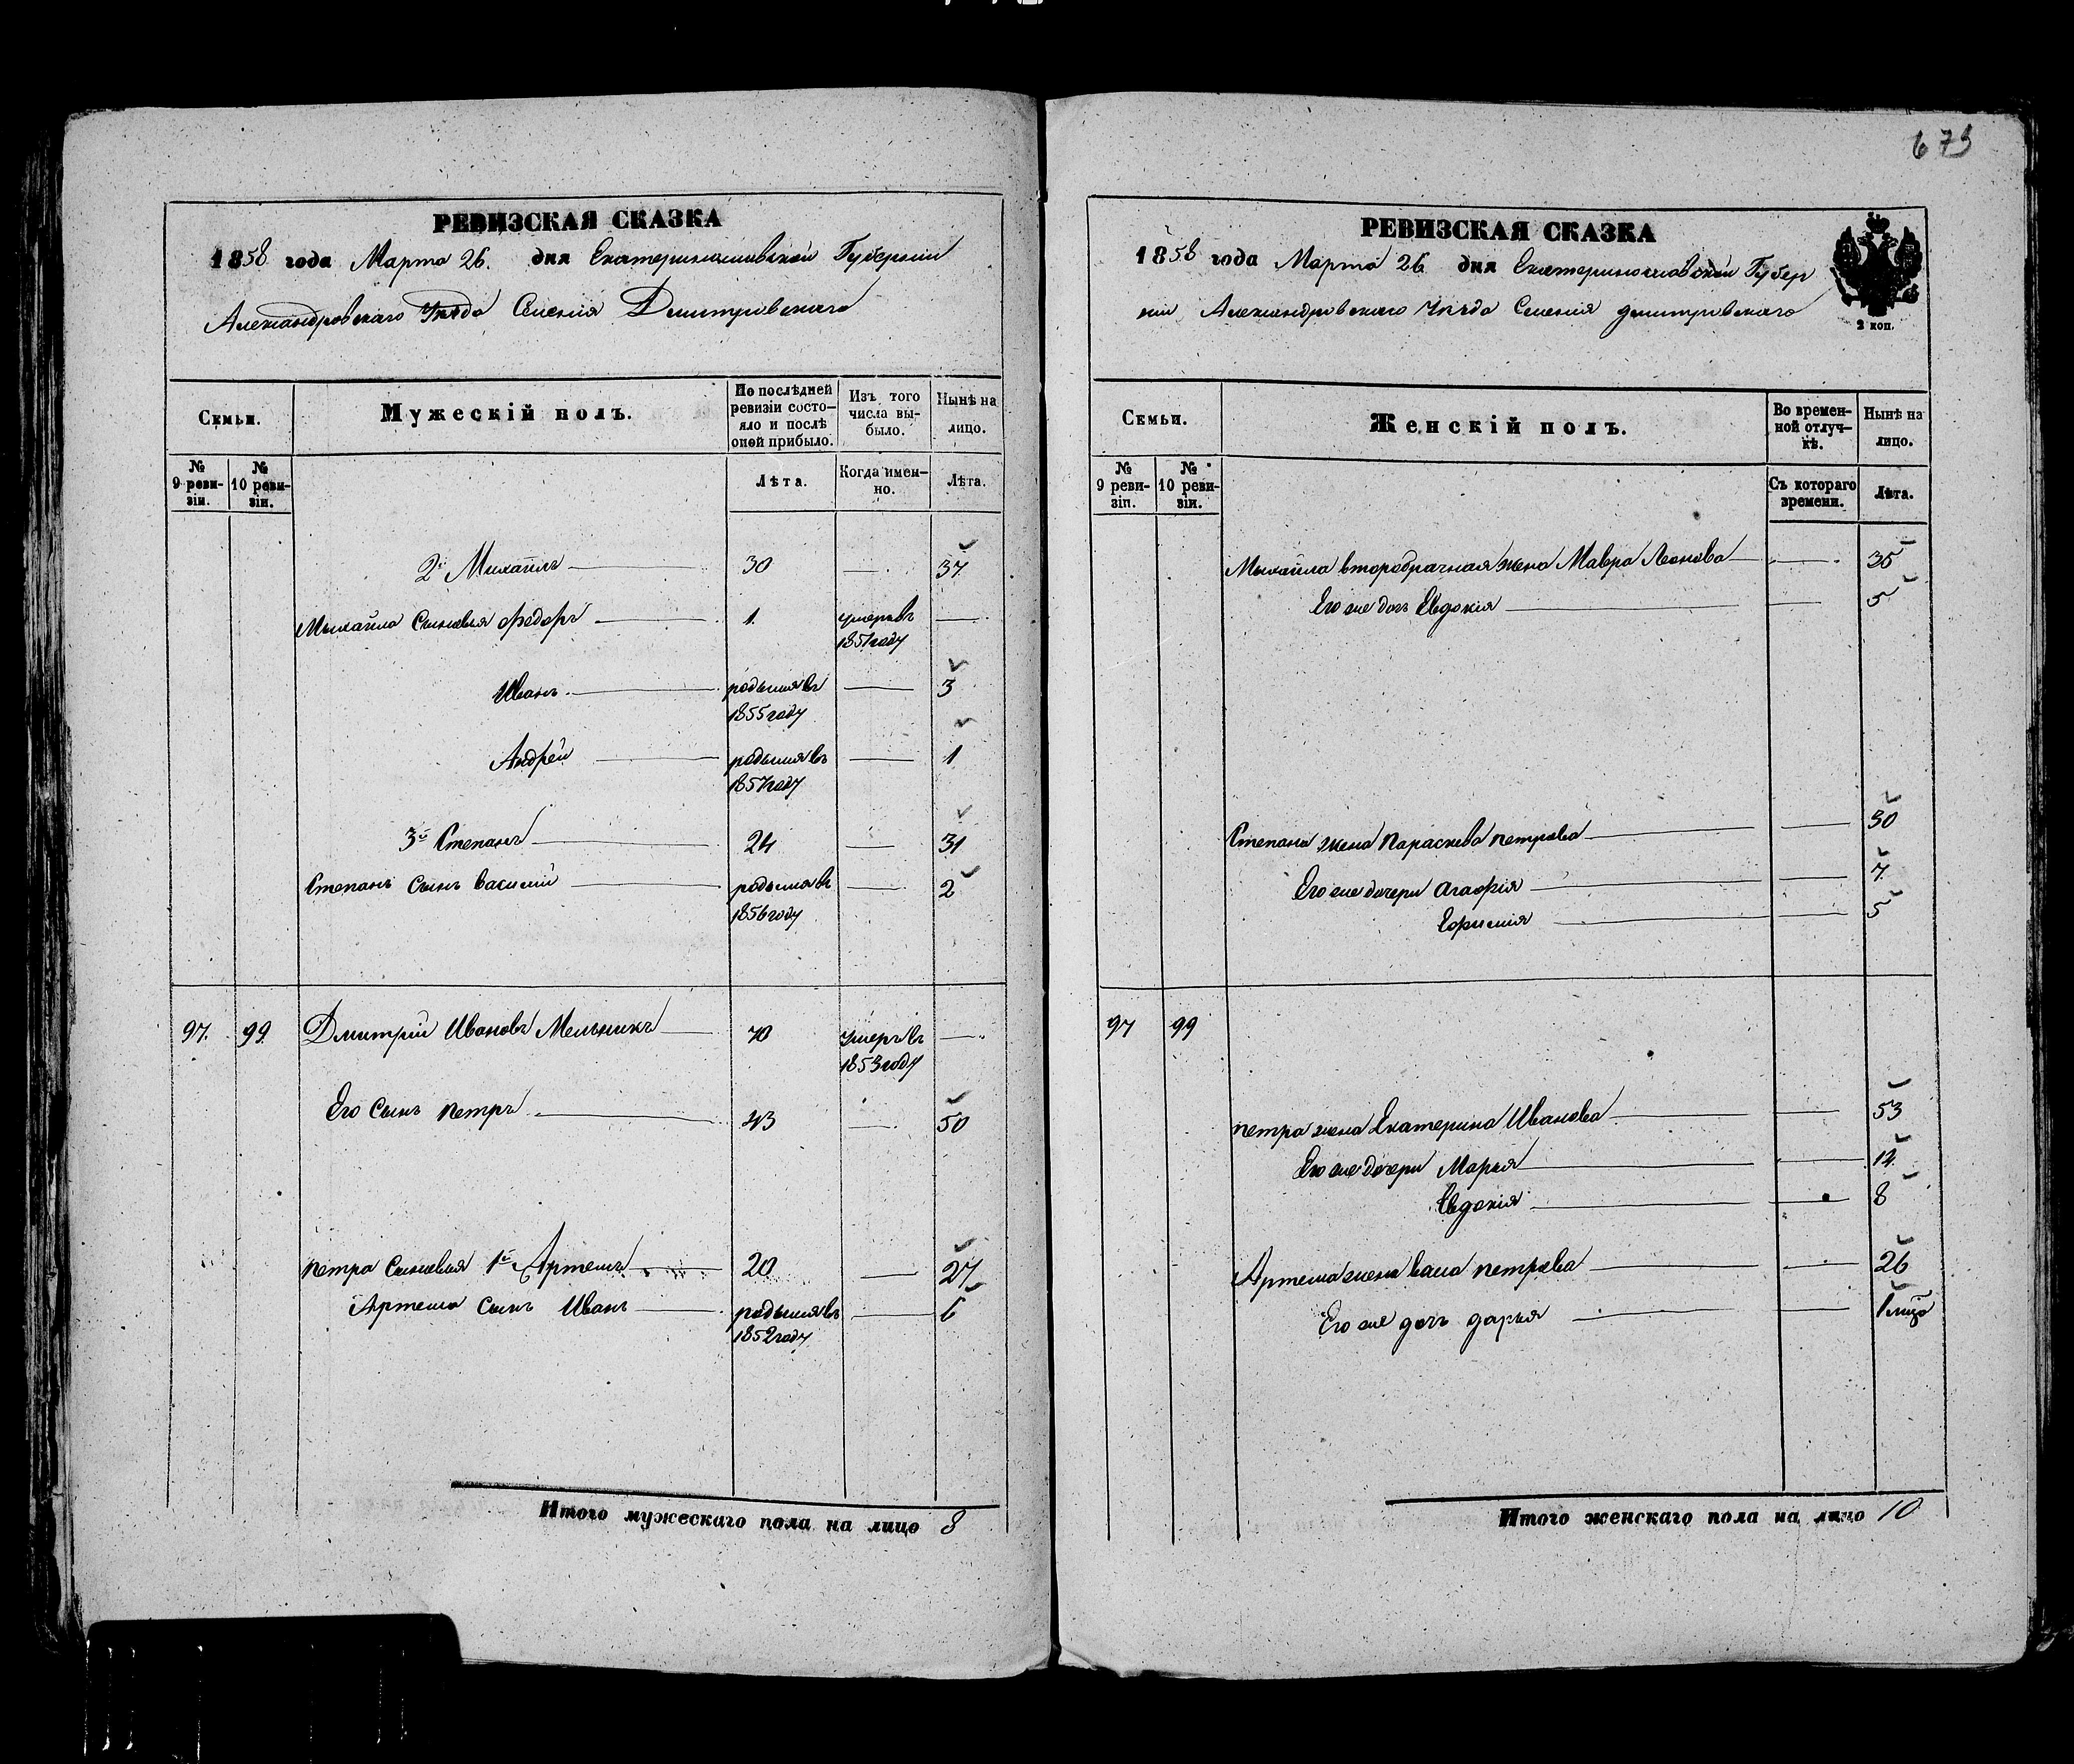 673
РЕВИЗСКАЯ СКАЗКА
1858 года Марта 26. дня Екатеринославской Губернии
Александровскаго Уезда Селенія Дмитровскаго
Семьи.
Мужескій полъ.
По послѣдней ревизіи состо-
яло и послѣ оной прибыло.
Изъ того числа вы-
было.
Нынѣ на лицо.
№ 9 реви-
зіи.
№ 10 реви-
зіи.
Лѣта.
Когда имен-
но.
Лѣта.
2й Михайлъ 30 — 37
Михайла Сыновья Федоръ 1. умеръ въ —
1851 году
Иванъ. родился въ — 3
1855 году
Андрей родился въ — 1
1857 году
3й Степанъ 24 — 31
Степанъ Сынъ василий родился въ — 2
1856 году
97. 99. Дмитрій Ивановъ Мельникъ 70 умеръ въ —
1853 году
Его Сынъ петръ 43 — 50
петра Сыновья 1й Артемъ 20 — 27
Артема Сынъ Иванъ родился въ — 6
1852 году
Итого мужескаго пола на лицо 8
РЕВИЗСКАЯ СКАЗКА
1858 года Марта 26 дня Екатеринославской Губер
ніи Александровскаго Уезда Селенія дмитровскаго
2 коп.
Семьи.
Женскій полъ.
Во времен-
ной отлуч-
кѣ.
Нынѣ на лицо.
№ 9 реви-
зіи.
№ 10 реви-
зіи.
Съ котораго времени.
Лѣта.
Михайла второбрачная жена Мавра Леонова — 35
Его же дочь Евдокія — 5
Степана жена Параскева петрова — 30
Его же дочери Агафія — 7
Ефимія — 5
97 99
петра жена Екатерина Иванова — 53
Его же дочери Марья — 12
Евдокія — 8
Артема жена васа петрова — 26
Его же дочь дарья — 1
Итого женскаго пола на лицо 10